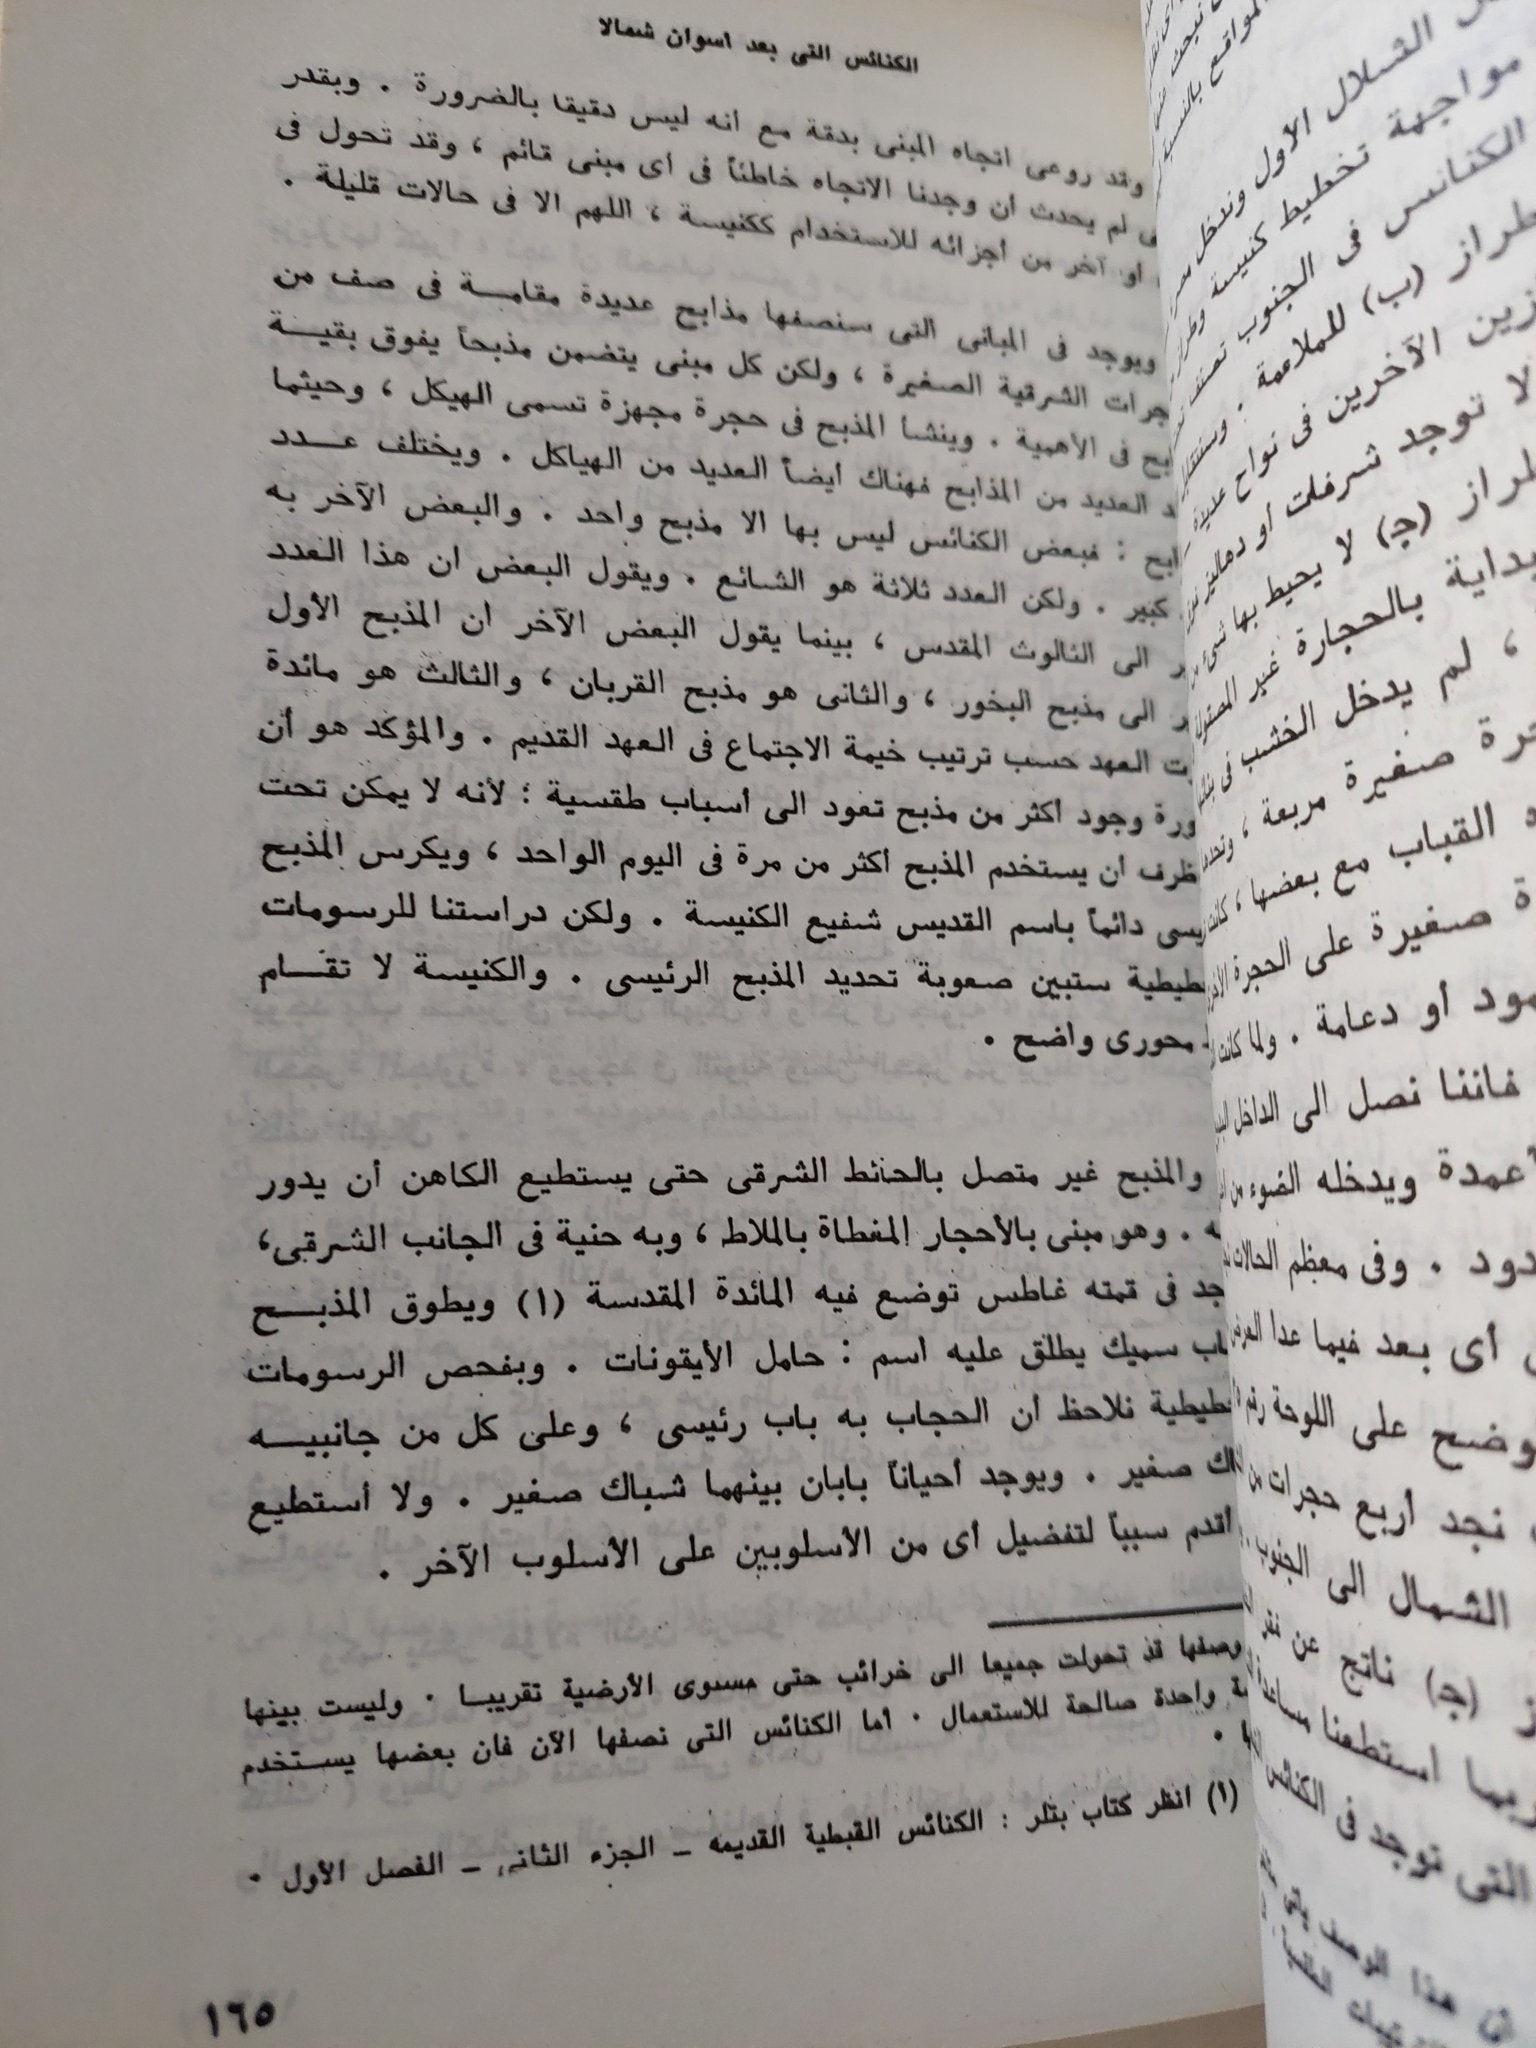 الكنائس التى بعد اسوان شمالا
وقد روعى اتجاه المبنى بدقة مع أنه ليس دقيقا بالضرورة . وبقدر
لم يحدث أن وجدنا الاتجاه خاطئاً فى أى مبنى قائم ، وقد تحول فى
أو آخر من أجزائه للاستخدام ككنيسة ، اللهم الا فى حالات قليلة .
ويوجد فى المبانى التى سنصفها مذابح عديدة مقامـــة فى صف من
جرات الشرقية الصغيرة ، ولكن كل مبنى يتضمن مذبحاً يفوق بقيـــة
بح فى الأهمية . وينشأ المذبح فى حجرة مجهزة تسمى الهيكل ، وحيثما
د العديد من المذابح فهناك أيضاً العديد من الهياكل . ويختلف عـــدد
ابح : فبعض الكنائس ليس بها الا مذبح واحد . والبعض الآخر به
كبير . ولكن العدد ثلاثة هو الشائع . ويقول البعض ان هذا العدد
ر الى الثالوث المقدس ، بينما يقول البعض الآخر ان المذبح الأول
ر الى مذبح البخور ، والثانى هو مذبح القربان ، والثالث هو مائدة
ت العهد حسب ترتيب خيمة الاجتماع فى العهد القديم . والمؤكد هو أن
ورة وجود أكثر من مذبح تعود الى أسباب طقسية ؛ لأنه لا يمكن تحت
ظرف أن يستخدم المذبح أكثر من مرة فى اليوم الواحد ، ويكرس المذبح
يسى دائماً باسم القديس شفيع الكنيسة . ولكن دراستنا للرسومات
طيطية ستبين صعوبة تحديد المذبح الرئيسى . والكنيسة لا تقـــام
محورى واضح .
والمذبح غير متصل بالحائط الشرقى حتى يستطيع الكاهن أن يدور
ه . وهو مبنى بالأحجار المغطاة بالملاط ، وبه حنية فى الجانب الشرقى،
جد فى قمته غاطس توضع فيه المائدة المقدسة (١) ويطوق المذبـــح
اب سميك يطلق عليه اسم : حامل الأيقونات . وبفحص الرسومات
طيطية نلاحظ أن الحجاب به باب رئيسى ، وعلى كل من جانبيـــه
اك صغير . ويوجد أحياناً بابان بينهما شباك صغير . ولا أستطيع
أقدم سبباً لتفضيل أى من الأسلوبين على الأسلوب الآخر .
وصفها قد تحولت جميعا الى خرائب حتى مستوى الأرضية تقريبـا . وليست بينها
ة واحدة صالحة للاستعمال . أما الكنائس التى نصفها الآن فان بعضها يســتخدم
ها .
(١) انظر كتاب بتلر : الكنائس القبطية القديمه ــ الجزء الثانى ــ الفصل الأول .
١٦٥
المواقع بالنسبة
الشلال الأول وندخل
مواجهة تخطيط كنيسة
الكنائس فى الجنوب تصنف
طراز (ب) للملاءمة .
زين الآخرين فى نواح عديدة
لا توجد شرفات أو دهاليز
طراز (ج) لا يحيط بها شىء
بداية بالحجارة غير المصقولة
، لم يدخل الخشب فى
جرة صغيرة مربعة ،
ه القباب مع بعضها ، كانت
ة صغيرة على الحجرة
مود أو دعامة . ولما كانت
فاننا نصل الى الداخل
أعمدة ويدخله الضوء من
دود . وفى معظم الحالات
أى بعد فيما عدا
وضح على اللوحة رقم
نجد أربع حجرات من
الشمال الى الجنوب
ز (ج) ناتج عن
ربما استطعنا
التى توجد فى الكنائس